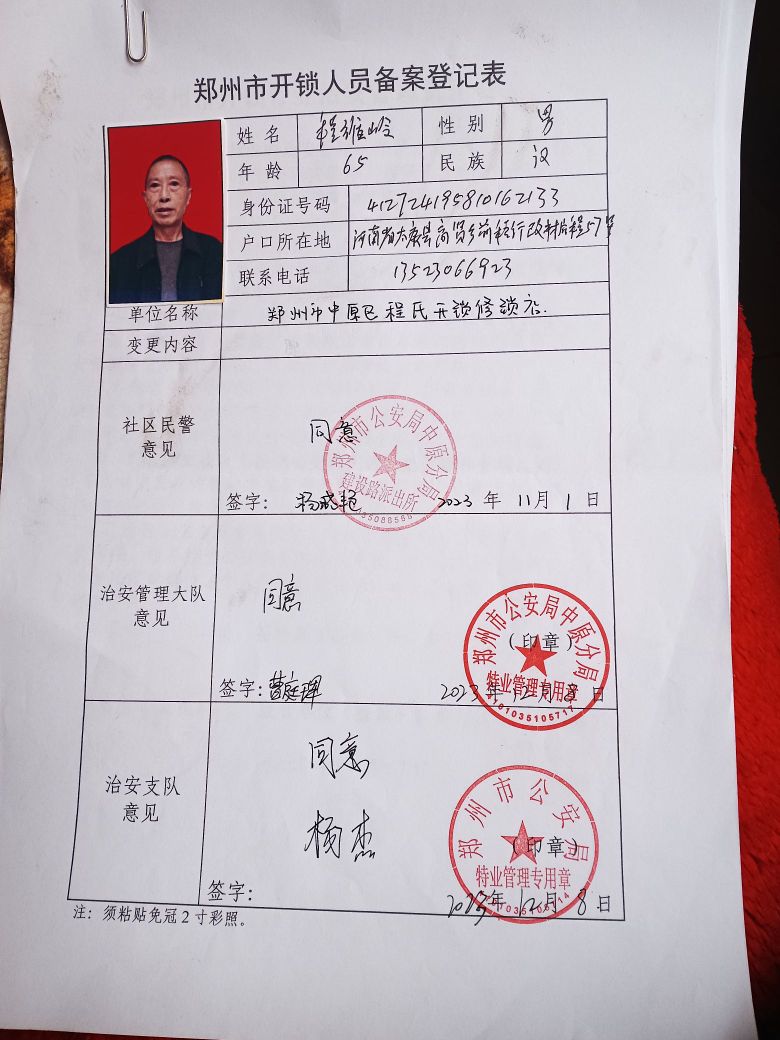 郑州市开锁人员备案登记表
姓 名 程 性 别 男
年 龄 65 民 族 汉
身份证号码 412724195810162133
户口所在地 河南省太康县高贤乡前程行政村后程57号
联系电话 13523066923
单位名称 郑州市中原区程氏开锁修锁店
变更内容
社区民警
意见
同意
郑州市公安局中原分局
建设路派出所
签字: 2023 年 11 月 1 日
治安管理大队
意见
同意
郑州市公安局中原分局
(印章)
特业管理专用章
4101035105717
签字: 曹庭辉 2023 年 12 月 8 日
治安支队
意见
同意
杨杰
郑州市公安局
(印章)
特业管理专用章
签字:
2023年 12月 8 日
注: 须粘贴免冠2寸彩照。